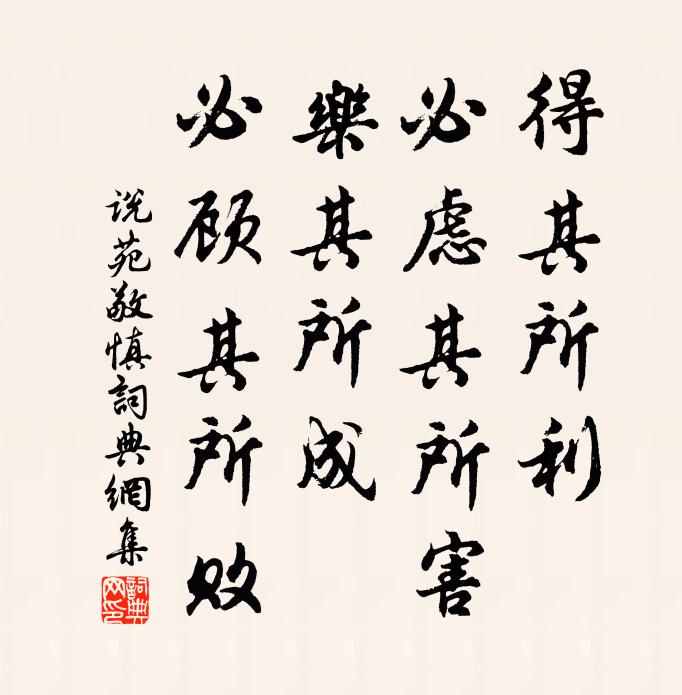 得其所利
必虑其所害
樂其所成
必顾其所败
说苑敬慎詞典網集
詞典
网印